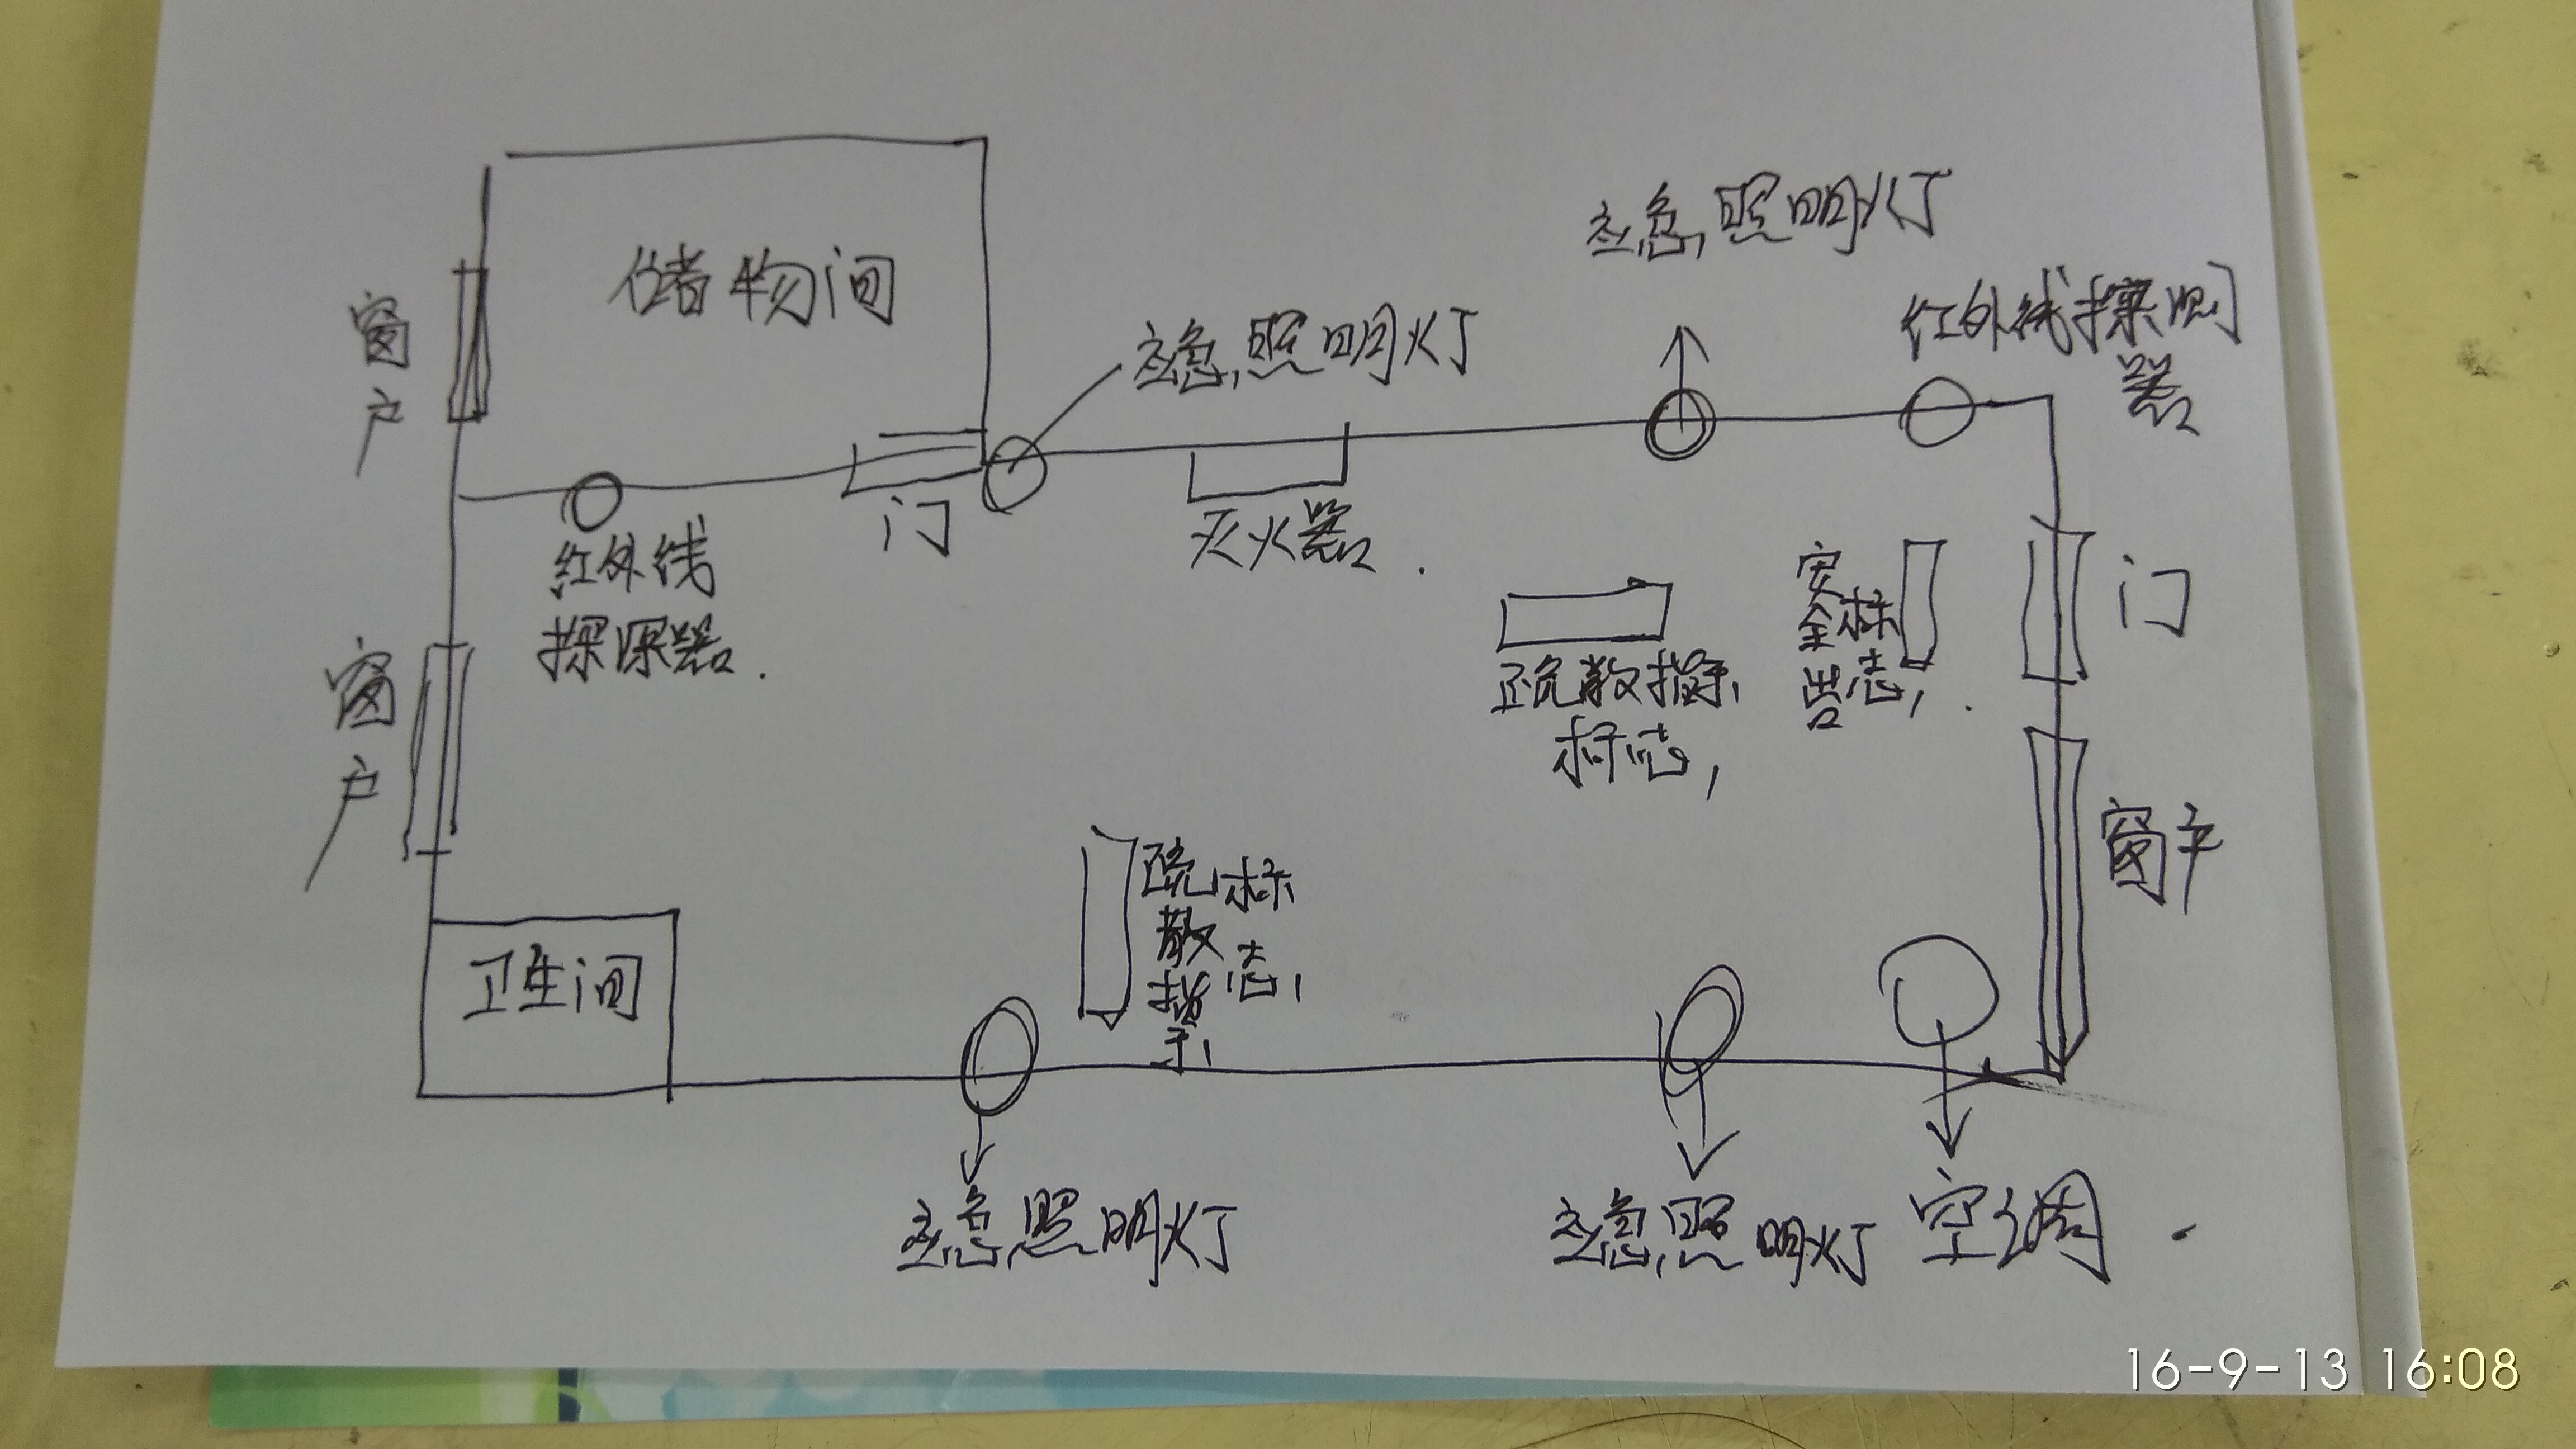 储物间
窗户
应急照明灯
应急照明灯
红外线探测
器
门
红外线
探测器.
灭火器.
门
安全出口
标志,.
疏散指示
标志,
窗户
窗户
疏散指示
标志,
卫生间
应急照明灯
应急照明灯
空调.
16-9-13 16:08